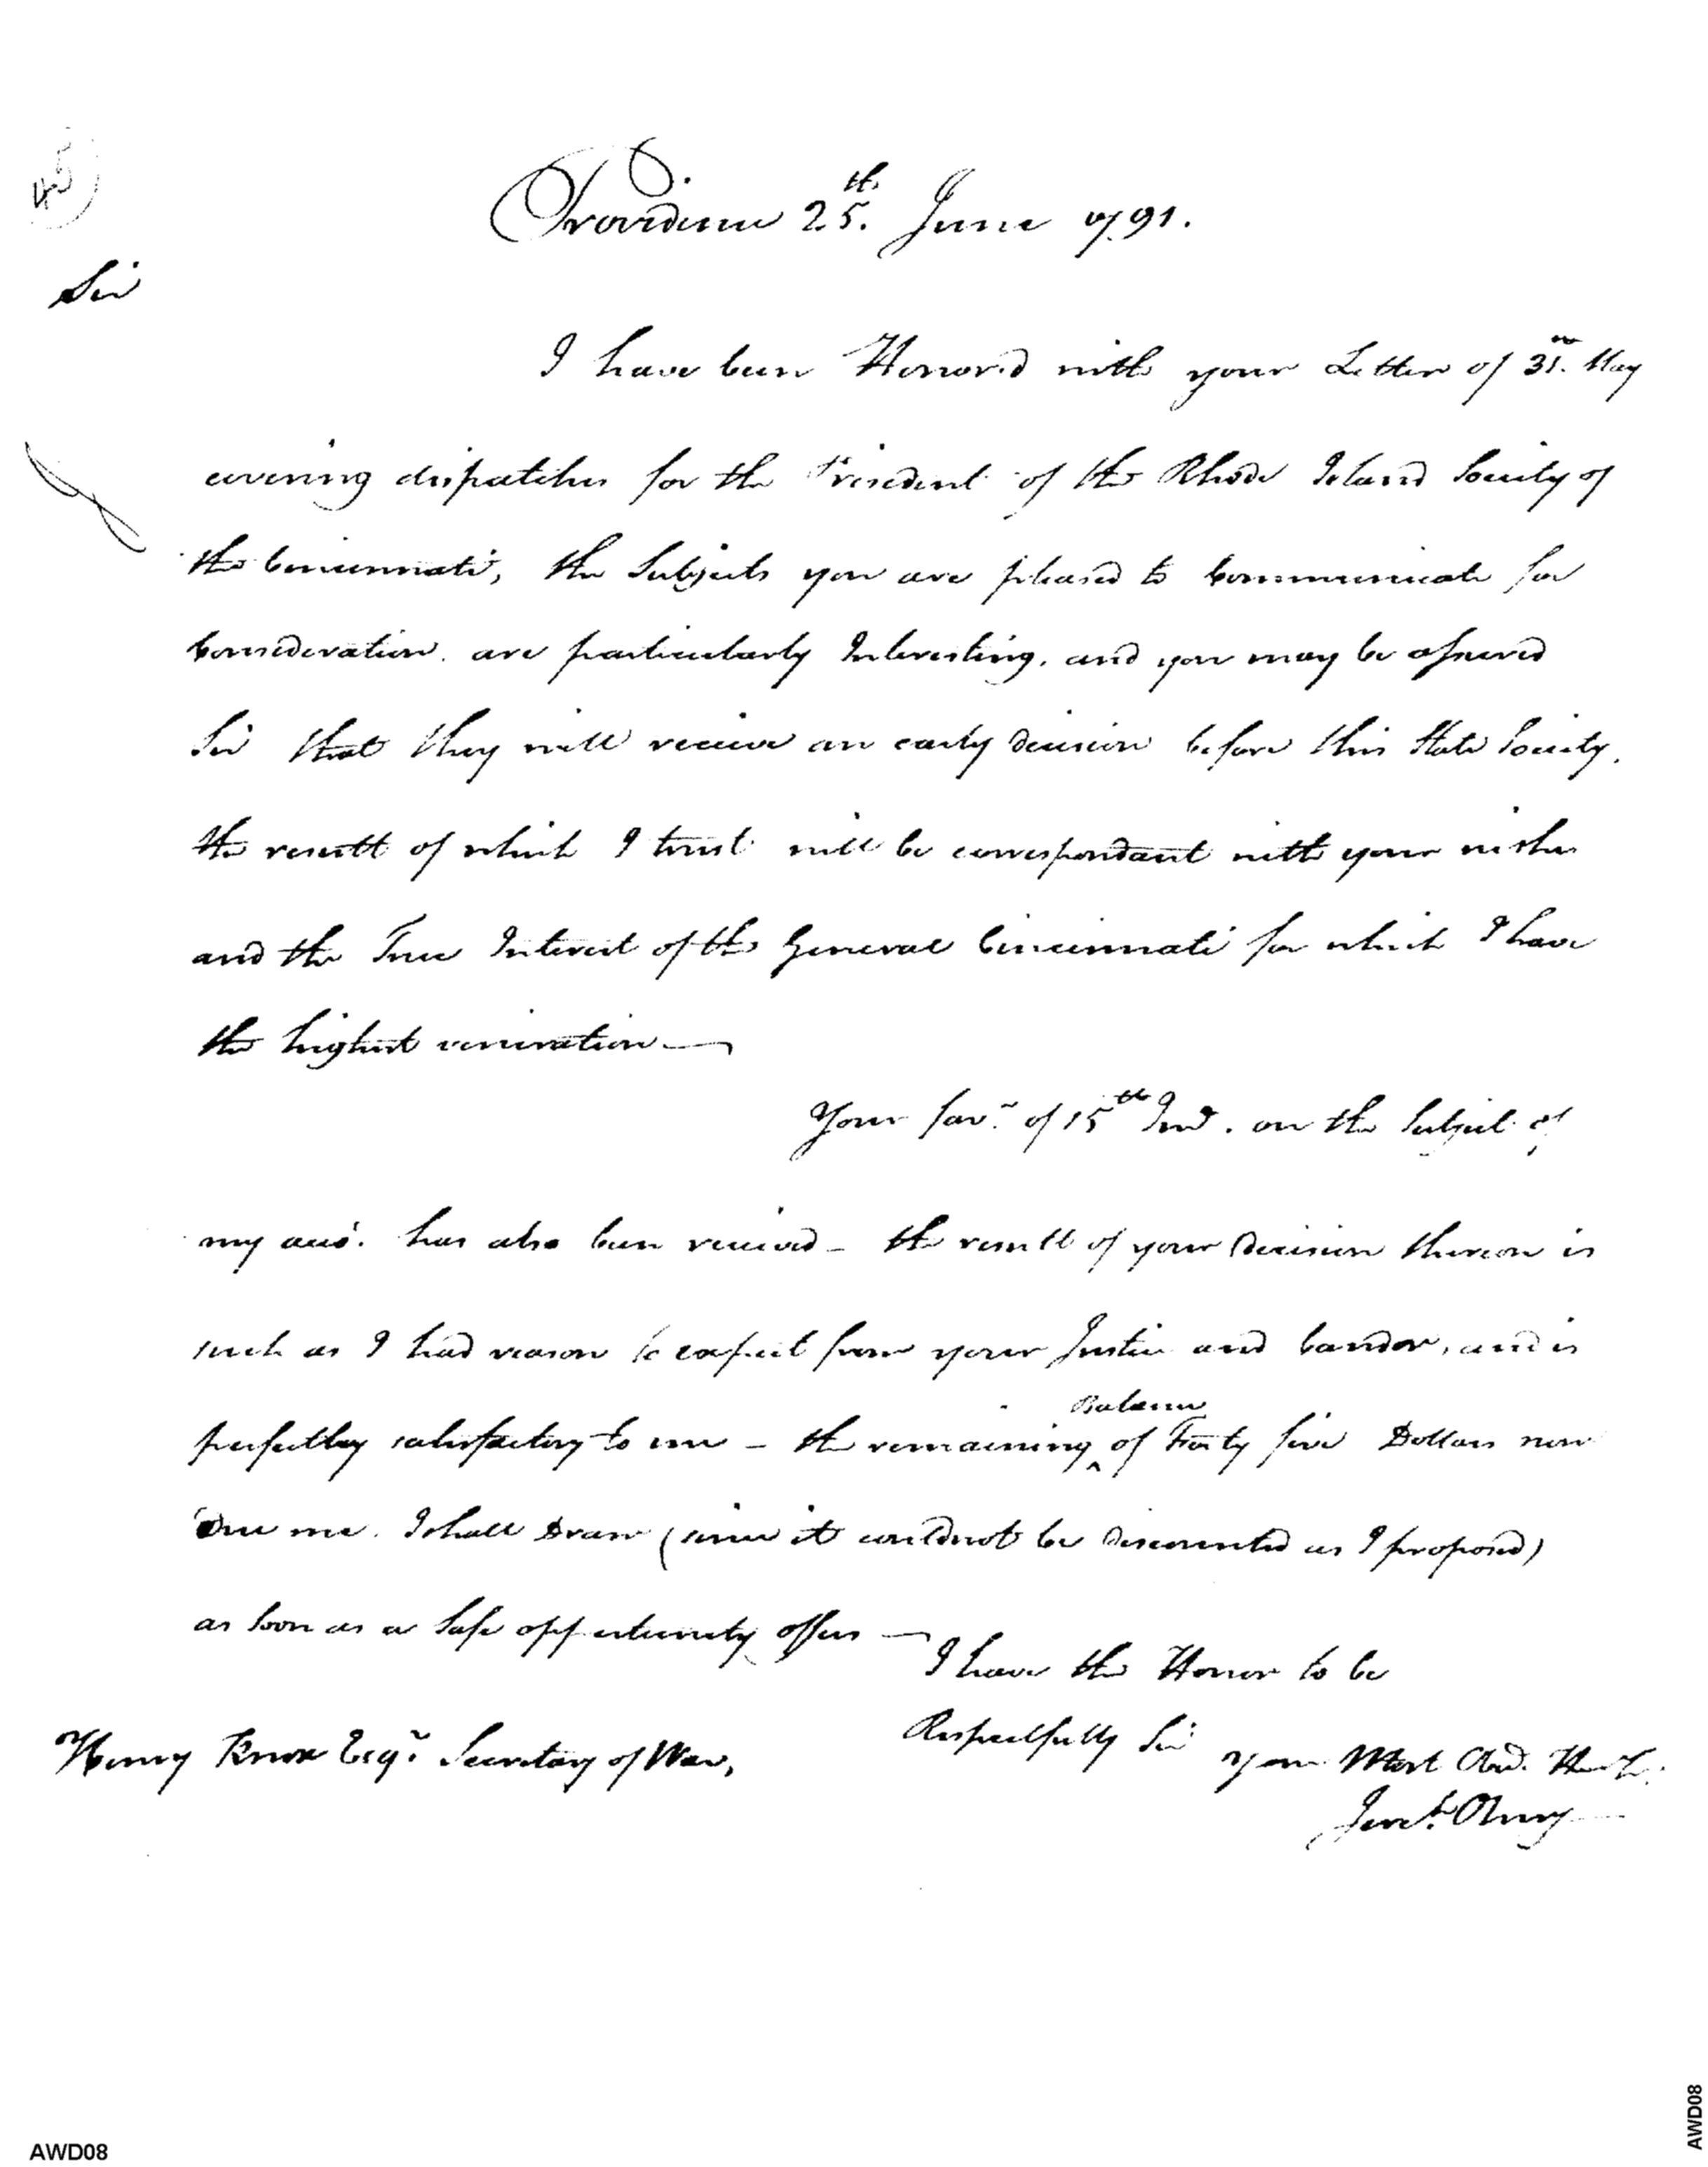 Providence 25th. June 1791.
Sir
I have been Honor'd with your Letter of 31. May
covering dispatches for the President of the Rhode Island Society of
the Cincinnati, the Subjects you are pleased to Communicate for
Consideration. are particularly Interesting, and you may be assured
Sir that they will receive an early decision before this State Society.
the result of which I trust will be correspondant with your wishes
and the True Interest of the General Cincinnati for which I have
the highest veneration—
Your favr. of 15th Inst. on the Subject of
my acct. has also been received – the result of your Decision thereon is
such as I had reason to expect from your Justice and Candor, and is
perfectley satisfactory to me – the remaining ^ Balance of Forty five Dollars now
Due me. I shall Draw (since it could not be Discounted as I proposed)
as Soon as a Safe oppertunity offers —
I have the Honor to be
Respectfully Sir
your Most Obd. Hum
Henry Knox Esqr. Secretary of War,
Jereh. Olney
AWD08
AWD08